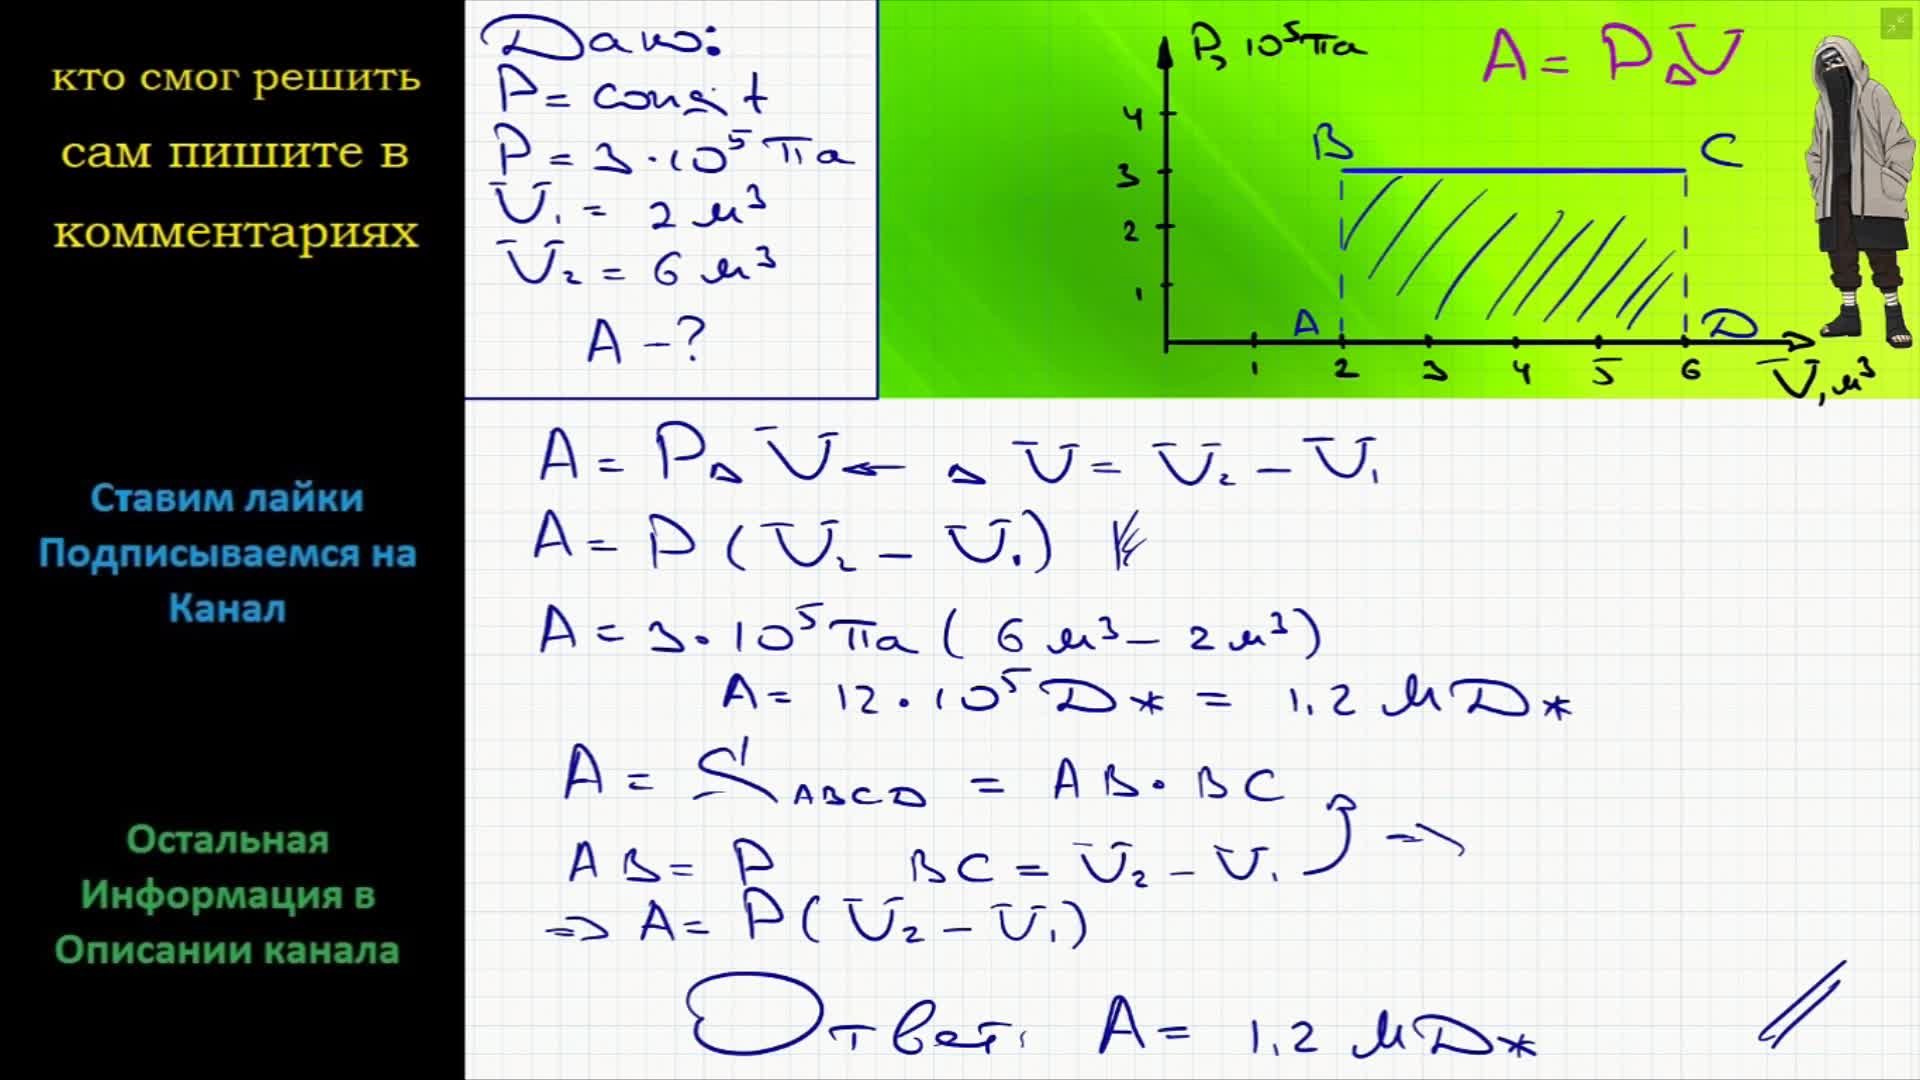 кто смог решить
сам пишите в
комментариях
Ставим лайки
Подписываемся на
Канал
Остальная
Информация в
Описании канала
Дано:
P = const
P = 3·10⁵ Па
V₁ = 2 м³
V₂ = 6 м³
A – ?
P, 10⁵ Па
A = PΔV
4
3
2
1
B
C
A
D
1 2 3 4 5 6
V, м³
A = PΔV ← ΔV = V₂ – V₁
A = P (V₂ – V₁)
A = 3·10⁵ Па ( 6 м³ – 2 м³)
A = 12·10⁵ Дж = 1,2 МДж
A = S ABCD = AB·BC
AB = P BC = V₂ – V₁ =>
=> A = P(V₂ – V₁)
Ответ: A = 1,2 МДж